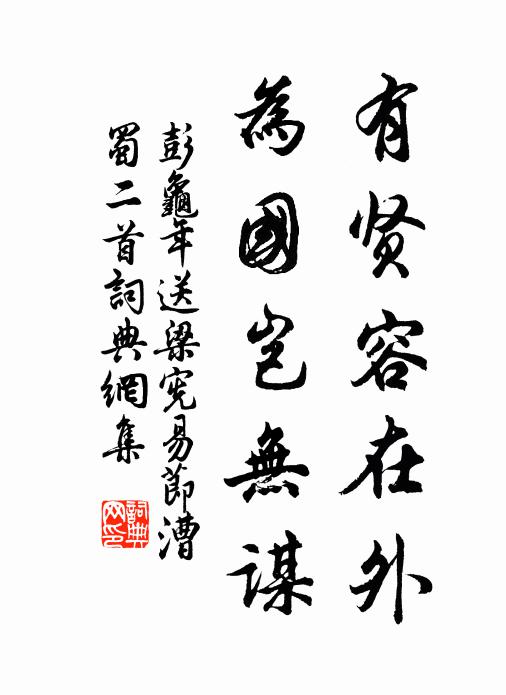 有贤容在外
為國豈無謀
彭龜年送梁宪易節漕
蜀二首詞典網集
詞典网印